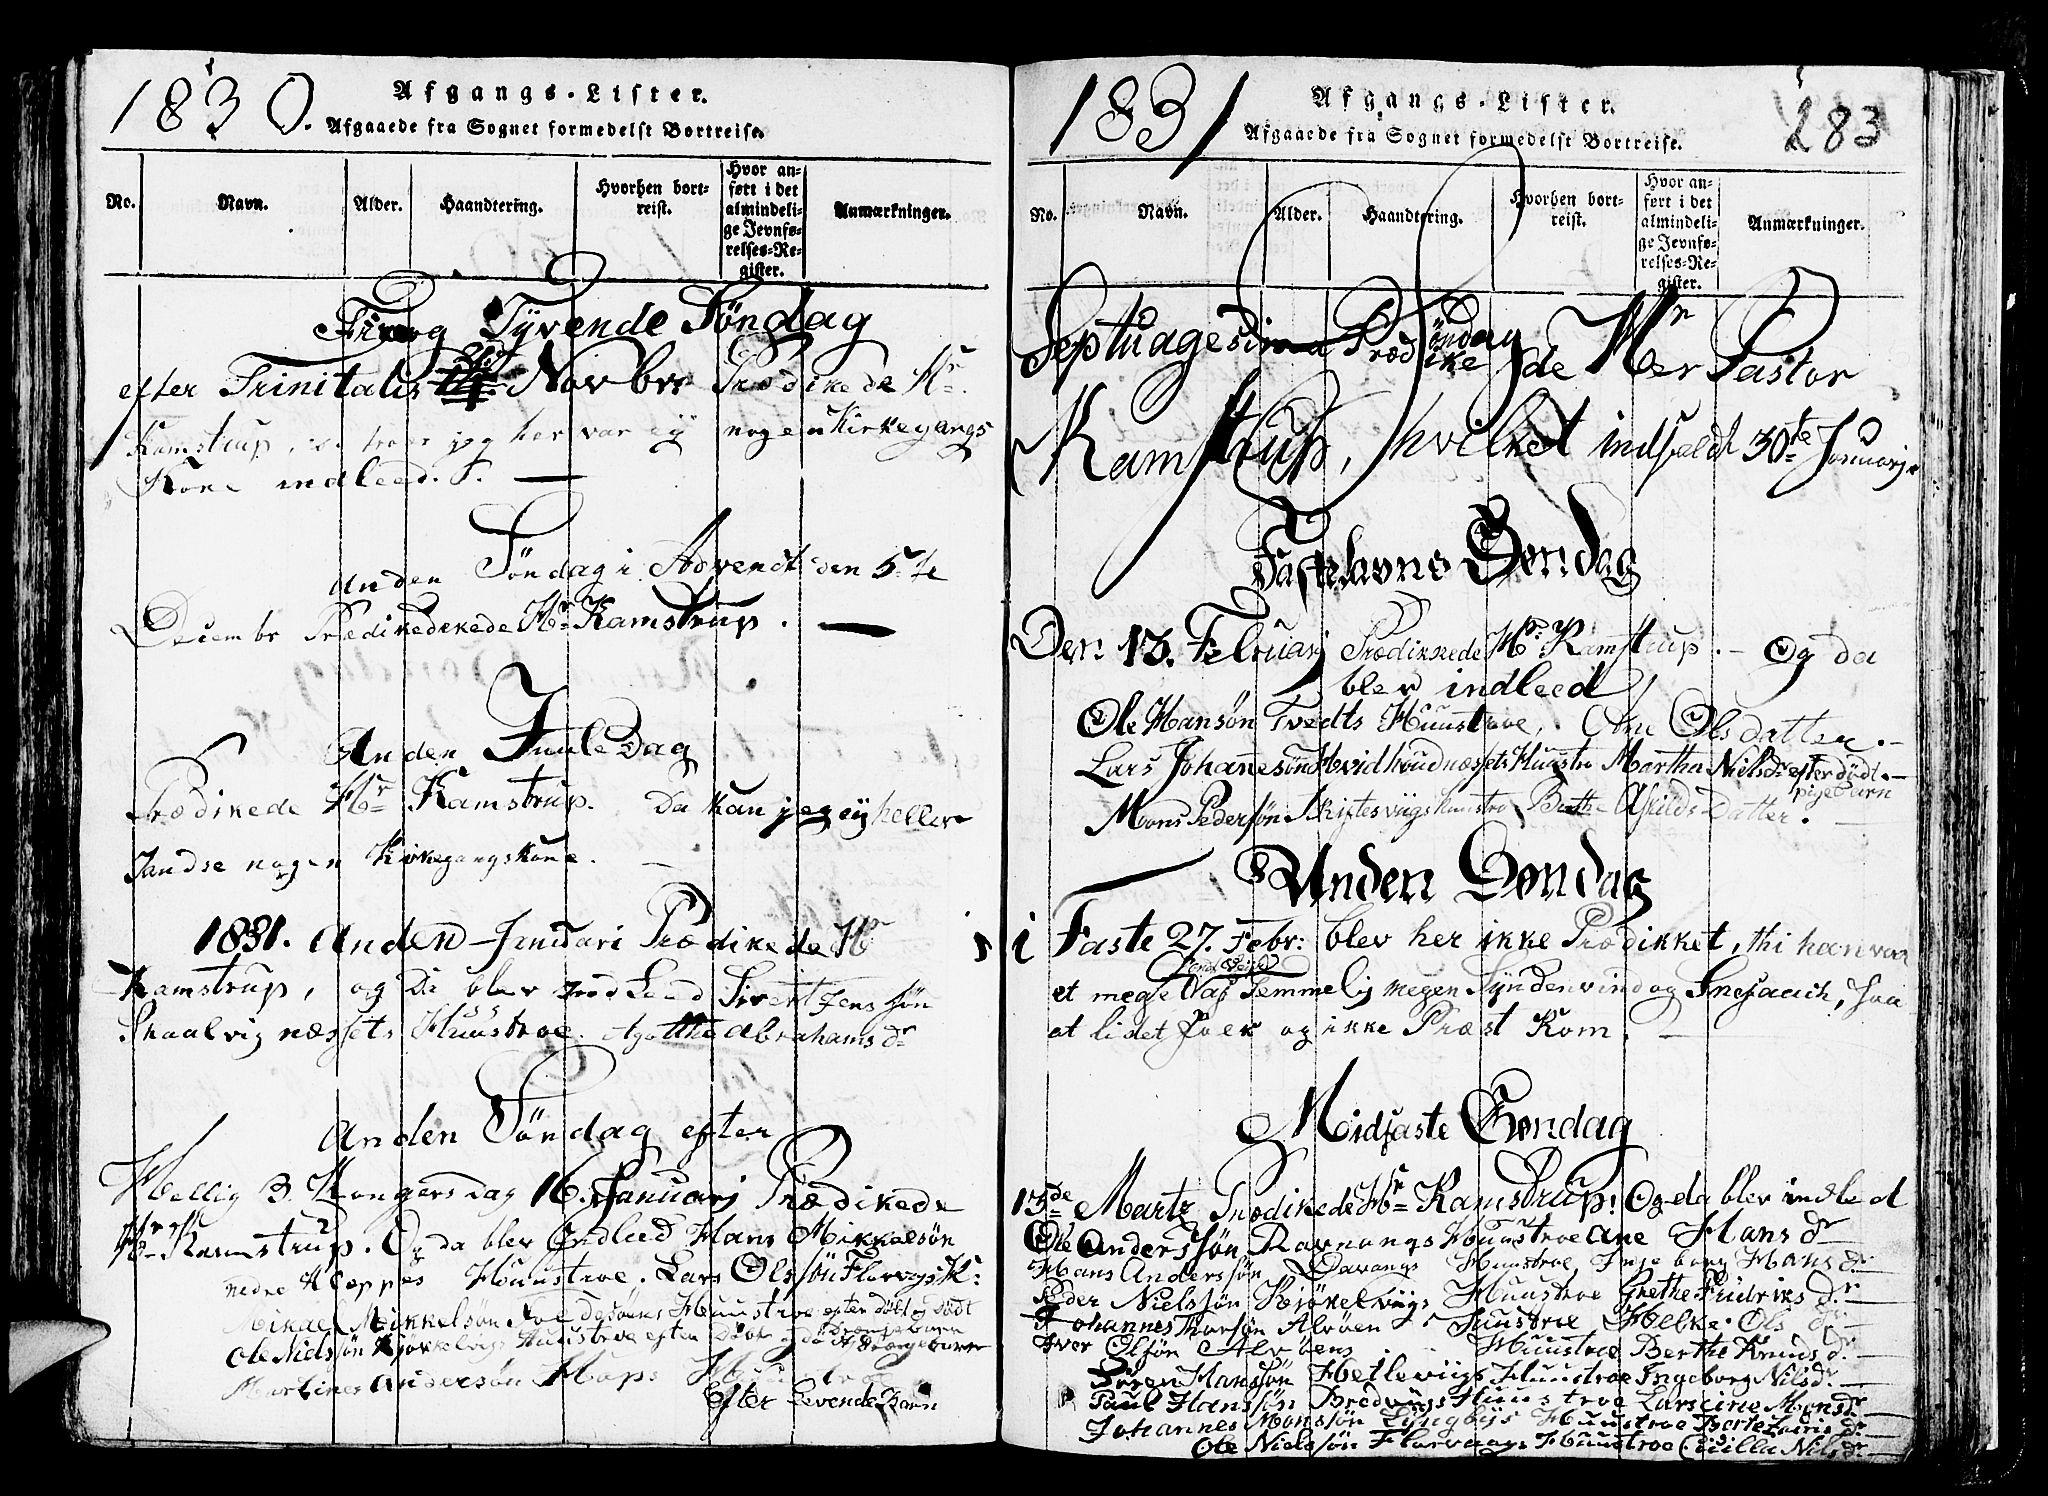 1830.
Afgangs-Lister.
Afgaaede fra Sognet formedelst Bortreise.
No.
Navn.
Alder.
Haandtering.
Hvorhen bort-
reist.
Hvor an-
ført i det
almindeli-
ge Jevnfø-
relses-Re-
gister.
Anmærkninger.
Fireog Tyvende Søndag
efter Trinitatis 21de Novbr Prædikede Hr.
Kamstrup, troer jeg her var ey nogen Kirkegangs
Kone indleed. —
Anden Søndag i Advendt den 5te
Decembr Prædikedekede Hr Kamstrup. —
Anden Juule Dag
Prædikede Hr Kamstrup. Da kan jeg ey heller
Sandse nogen Kirkegangskone. —
1831. Anden Januari Prædikede Hr
Kamstrup, og Da blev indleed Sivert Jenssøn
Skaalvignæssets Huustroe. Agothe Abrahamsdr
Anden Søndag efter
Hellig 3. Kongers dag 16. Januarj Prædikede
Hr Kamstrup. Og da blev Indleed Hans Mikkelsøn
nedre Kleppes Huustroe. Lars Olssøn Florvogs H:
Mikael Mikkelsøn Huustroe efter Døbt og Dødt
Ole Nielssøn Kjørkelviigs Huustroe efter Døbt og
Martines Andersøn Hops Huustroe
Efter Levende Barn
1831
Afgangs-Lister.
283
Afgaaede fra Sognet formedelst Bortreise.
No.
Navn.
Alder.
Haandtering.
Hvorhen bort-
reist.
Hvor an-
ført i det
almindeli-
ge Jevnfø-
relses-Re-
gister.
Anmærkninger.
Septuagesima Søndag Prædikede Herr Pastor
Kamstrup, hvilket indfaldt 30te Januarj
Fastelavns Søndag
Den 13. Februarj Prædikkede Hr Kamstrup. — Og da
blev indleed
Ole Hansøn Tvedts Huustroe, Ane Olsdatter. —
Lars Johanesøn Hvidhoudnæssets Huustro Martha Nielsdr efter dødt —
pigebarn
Mons Pedersøn Skiftesviigs Huustro Berthe Askilds Datter.
Anden Søndag
i Faste 27. Febr: blev her ikke Prædikket, thi han var
et megse Vaf Temmelig megen Syndenvind og Snejaach, saa
at lidet Folk og ikke Præst Kom. —
Midfaste Søndag
13de Marti Prædikede Hr Kamstrup. Og da blev indleed
Ole Anderssøn Ravnangs Huustroe Ane Hansdr —
Hans Anderssøn Davangs Huustroe, Ingeborg Hansdr —
Peder Nielssøn Kjøkelviigs Huustroe Grethe Fridriksdr —
Johannes Thorsøn Alvøens Huustroe Helke Olsdr —
Iver Olsøn Alvøens Huustroe Berthe Knudsdr —
Søren Hanssøn Hetleviigs Huustroe Ingeborg Nilsdr —
Paul Hanssøn Bredviigs Huustroe Larsine Monsdr
Johannes Monssøn Lyngbøes Huustroe Berte Larisdr —
Ole Nielssøn Florvaags Huustroe Cicilla Nilsdr —